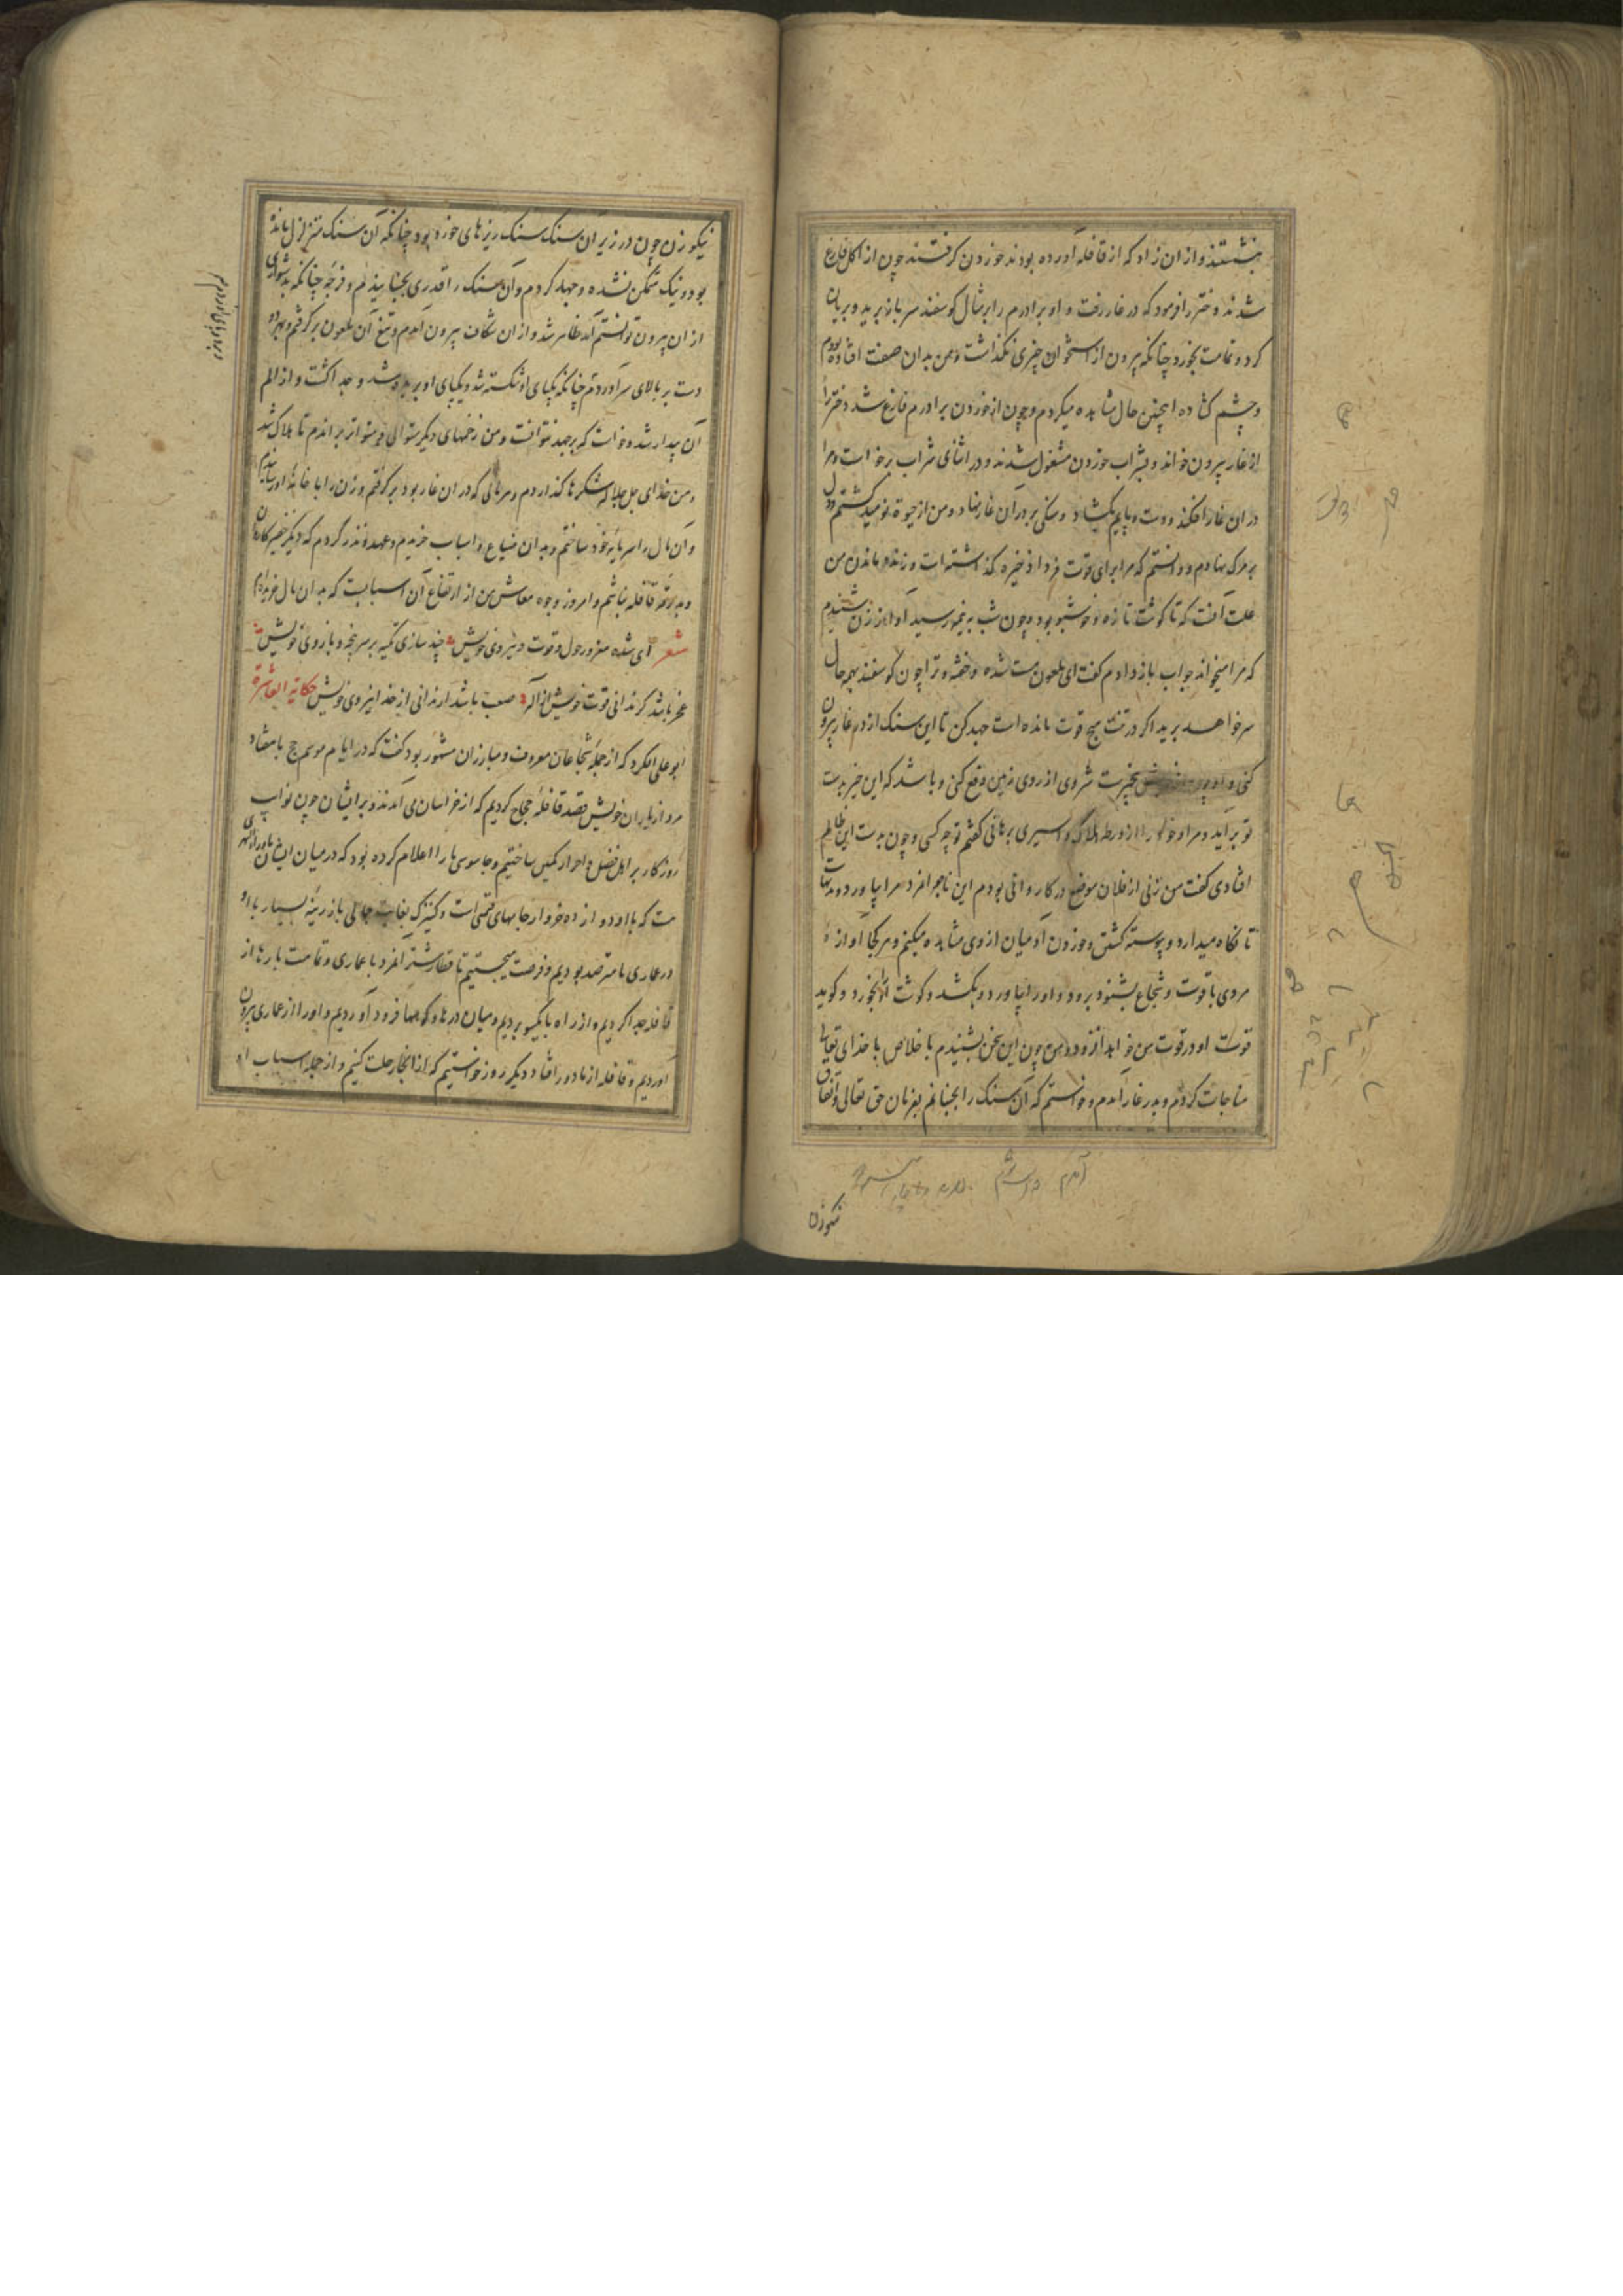 بنشستند و از ان زاد که از قافله آورده بودند خوردن گرفتند چون از اکل فارغ
شدند دختر را فرمود که در غار رفت و او برادرم را بر مثال کوسفند سر باز برید و بریان
کرد و تمامت بخورد چنانکه بیرون از استخوان چیزی نکذاشت و من بدان صفت افتاده بودم
و چشم کشاده اینچنین حال مشاهده میکردم و چون از خوردن برادرم فارغ شد دختر را
از غار بیرون خواند و بشراب خوردن مشغول شدند و در اثنای شراب برخاست و مرا
در ان غار افکند و دست و پایم بکشاد و سنکی بر در آن غار نهاد و من از حیوة نومید کشتم و دل
بر مرک نهادم و دانستم که مرا برای قوت فردا ذخیره کذاشته است و زنده ماندن من
علت آنست که تا کوشت تازه و خوشبو بود و چون شب به نیمه رسید آواز زن شنیدم
که مرا میخواند جواب باز دادم کفت ای ملعون مست شده و خفته و ترا چون کوسفند بهمه حال
سر خواهد برید اکر در تنت هیچ قوت مانده است جهد کن تا این سنک از در غار بیرون
کنی و شروی از روی زمین دفع کنی و باشد که این خیر بدست
تو برآید و مرا و خود را از ورطه هلاک و اسیری برهانی کفتم تو چه کسی و چون بدست این ظالم
افتادی کفت من زنی از فلان موضع در کاروانی بودم این ناجوانمرد مرا بیاورد و مدتهاست
تا نکاه میدارد و پیوسته کشتن و خوردن آدمیان از وی مشاهده میکنم و هر کجا آوازه
مردی با قوت و شجاع بشنود برود و او را بیاورد و بکشد و کوشت او بخورد و کوید
قوت او در قوت من خواهد افزود و من چون این سخن بشنیدم با خلاص با خدای تعالی
مناجات کردم و بدر غار آمدم و خواستم که آن سنک را بجنبانم بفرمان حق تعالی و اتفاق
نیکو زن
نیکو زن چون در زیر آن سنک سنک ریزهای خورد بود چنانکه آن سنک متزلزل مانده
بود و نیک متمکن نشده و جهد کردم و آن سنک را قدری بجنبانیدم و فرجه چنانکه بدشواری
از ان بیرون توانستم آمد ظاهر شد و از ان شکاف بیرون آمدم و تیغ آن ملعون برکرفتم و بهر دو
دست بر بالای سر آوردم چنانکه یکپای او شکسته شد و یکپای او بریده شد و جدا کشت و از الم
آن بیدار شد و خواست که برجهد نتوانست و من زخمهای دیکر متوالی و متواتر براندم تا هلاک شد
و من خدای جل جلاله شکرها کذاردم و هر مالی که در ان غار بود برکرفتم و زن را با خانه او رسانیدم
و آن مال را سرمایه خود ساختم و بدان ضیاع و اسباب خریدم و عهد و نذر کردم که دیکر خفیر کاروان
و بدرقه قافله نباشم و امروز وجوه معاش من از ارتفاع آن اسبابست که بدان مال خریده ام
شعر ای شده مغرور حول و قوت و نیروی خویش چند سازی تکیه بر سر پنجه و بازوی خویش
عجز باشد کر ندانی قوت خویش از اله صعب باشد ار ندانی از خدا نیروی خویش حکایة العاشرة
ابو علی الکرد که از جمله شجاعان معروف و مبارزان مشهور بود کفت که در ایام موسم حج با هفتاد
مرد از یاران خویش قصد قافله حجاج کردیم که از خراسان می آمدند و بر ایشان چون نوایب
روزکار بر اهل فضل و احرار کمین ساختیم و جاسوسی ما را اعلام کرده بود که در میان ایشان
ست که با او دوازده خروار جامهای قیمتی است و کنیزک بغایت جمالی با زرینه بسیار با او
در عماری ما مترصد بودیم و فرصت میجستیم تا قطار شتر آنمرد با عماری و تمامت بارها از
قافله جدا کردیم و از راه با یکسو بردیم و میان درها و کوهها فرود آوردیم و او را از عماری بیرون
آوردیم و قافله از ما دور افتاد دیکر روز خواستیم که از آنجا رحلت کنیم و از جمله اسباب او